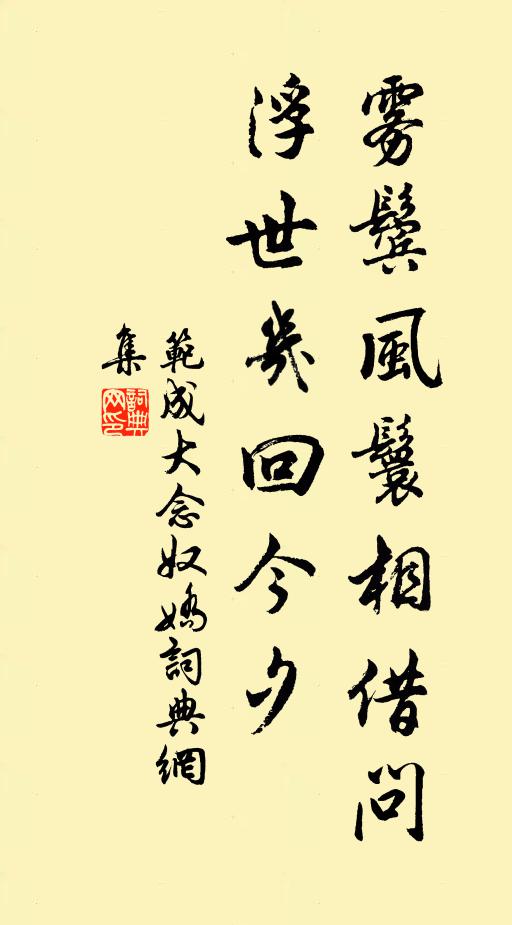 雾鬓風鬟相借問
浮世幾回今夕
範成大念奴嬌詞典網
集
詞典
网印